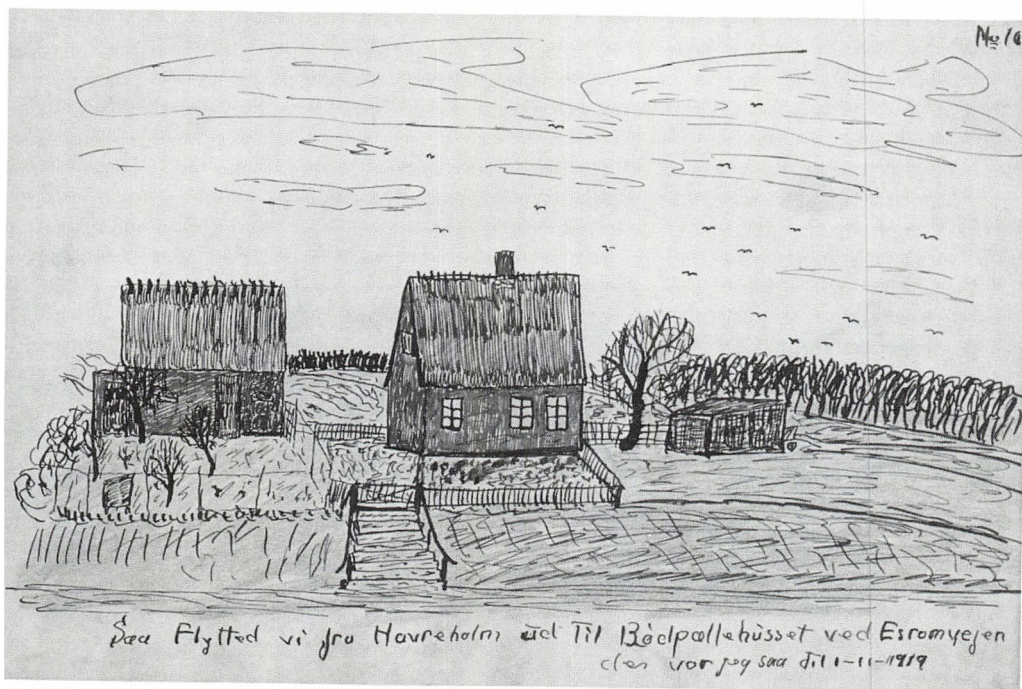 No 10
Saa Flytted vi fra Havreholm ud Til Bådpallehusset ved Esromvejen
der var jeg saa til 1-11-1919